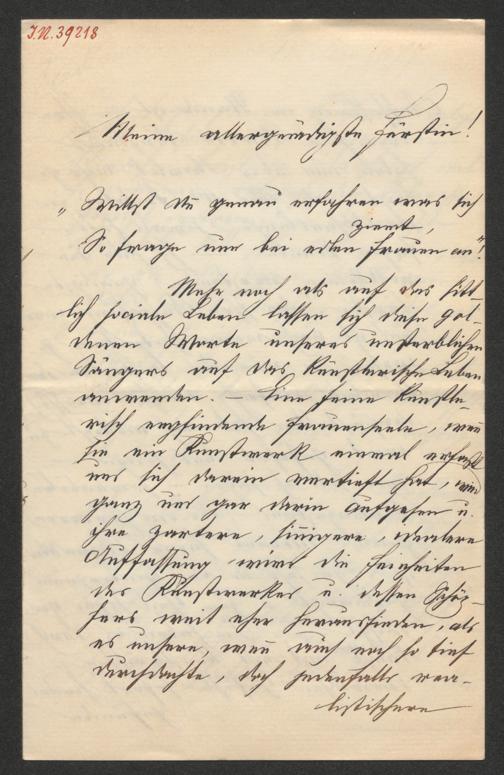 I.N. 39218
Meine allergnädigste Fürstin!
„Willst du genau erfahren was sich
ziemt,
So frage nur bei edlen Frauen an“!
Mehr noch als auf das sitt-
lich sociale Leben lassen sich diese gol-
denen Worte unseres unsterblichen
Sängers auf das künstlerische Leben
anwenden. – Eine feine künstle-
risch empfindende Frauenseele, wenn
sie ein Kunstwerk einmal erfaßt
und sich darein vertieft hat, wird
ganz und gar darin aufgehen u.
ihre zartere, sinnigere, idealere
Auffassung wird die Feinheiten
des Kunstwerkes u. dessen Schöp-
fers weit eher herausfinden, als
es unsere, wenn auch noch so tief
durchdachte, doch jedenfalls rea-
listischere